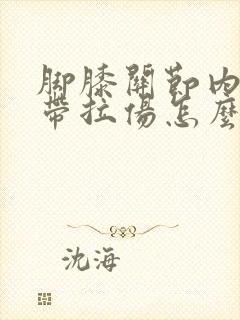 腳膝關節內
帶拉傷怎麼
沈海